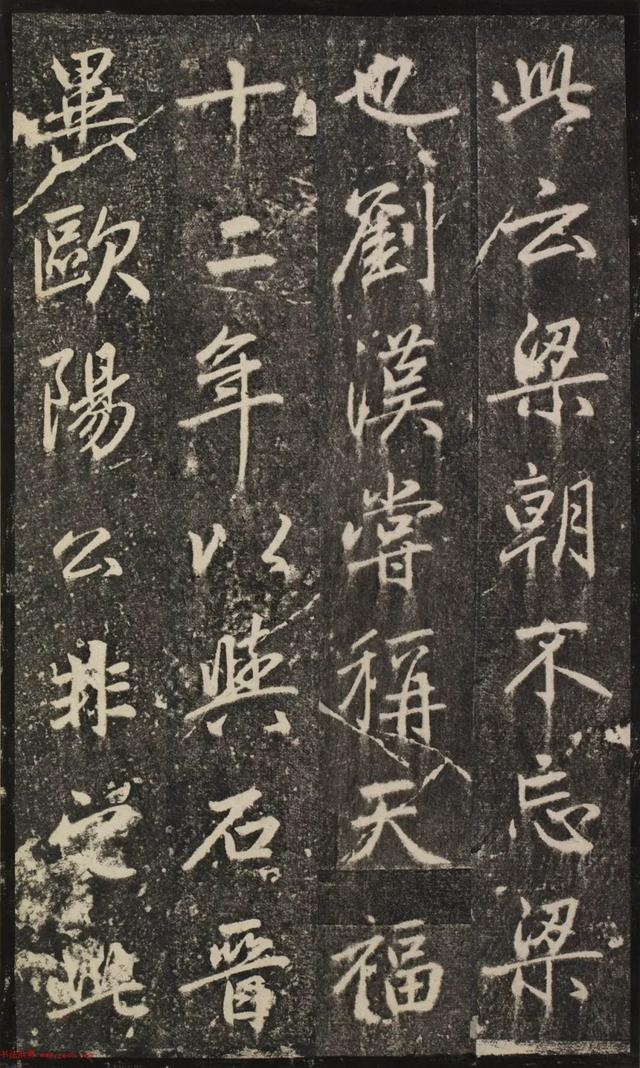 此云梁朝不忘梁
也劉漢嘗稱天福
十二年以與石晉
異歐陽公非受此